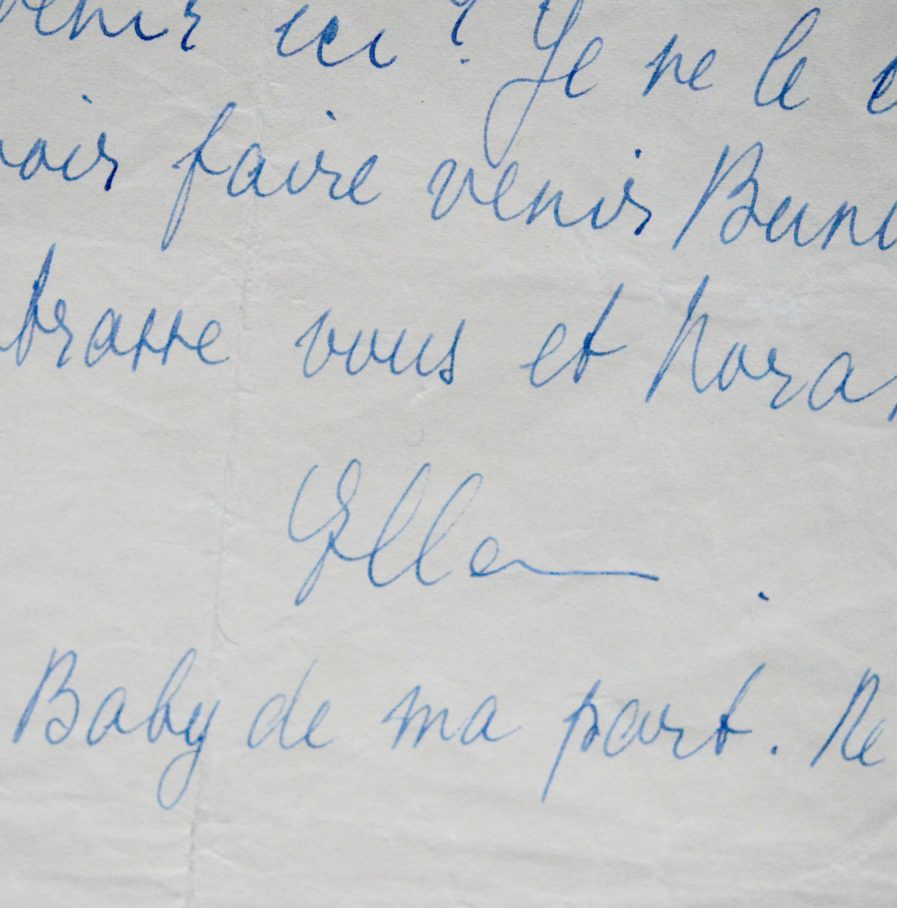 venir ici ? Je ne le
voir faire venir
brasse vous et
Ella
Baby de ma part. Ne